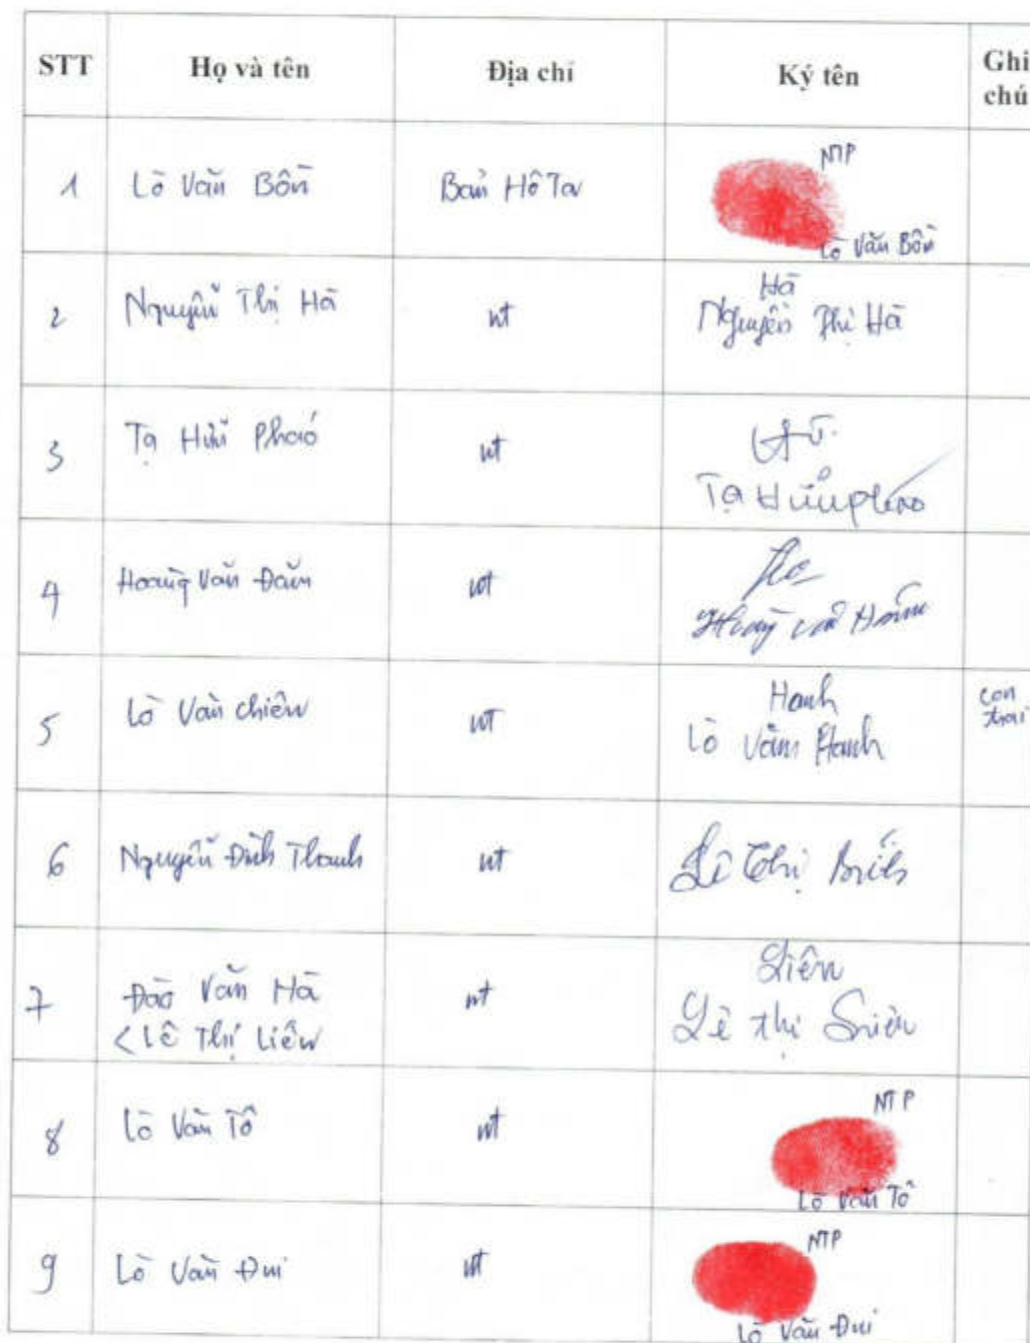 STT Họ và tên Địa chỉ Ký tên Ghi chú
1 Lò Văn Bôn Bản Hô Ta NTP
Lò Văn Bôn
2 Nguyễn Thị Hà nt Hà
Nguyễn Thị Hà
3 Tạ Hữu Pháo nt
Tạ Hữu pháo
4 Hoàng Văn Đăm nt
Hoàng văn
5 Lò Văn Chiêu nt Hanh con trai
Lò Văn Hanh
6 Nguyễn Đình Thanh nt Lê Thị
7 Đào Văn Hà nt Liên
<Lê Thị Liên Lê thị Liên
8 Lò Văn Tô nt NTP
Lò Văn Tô
9 Lò Văn Đui nt NTP
Lò Văn Đui